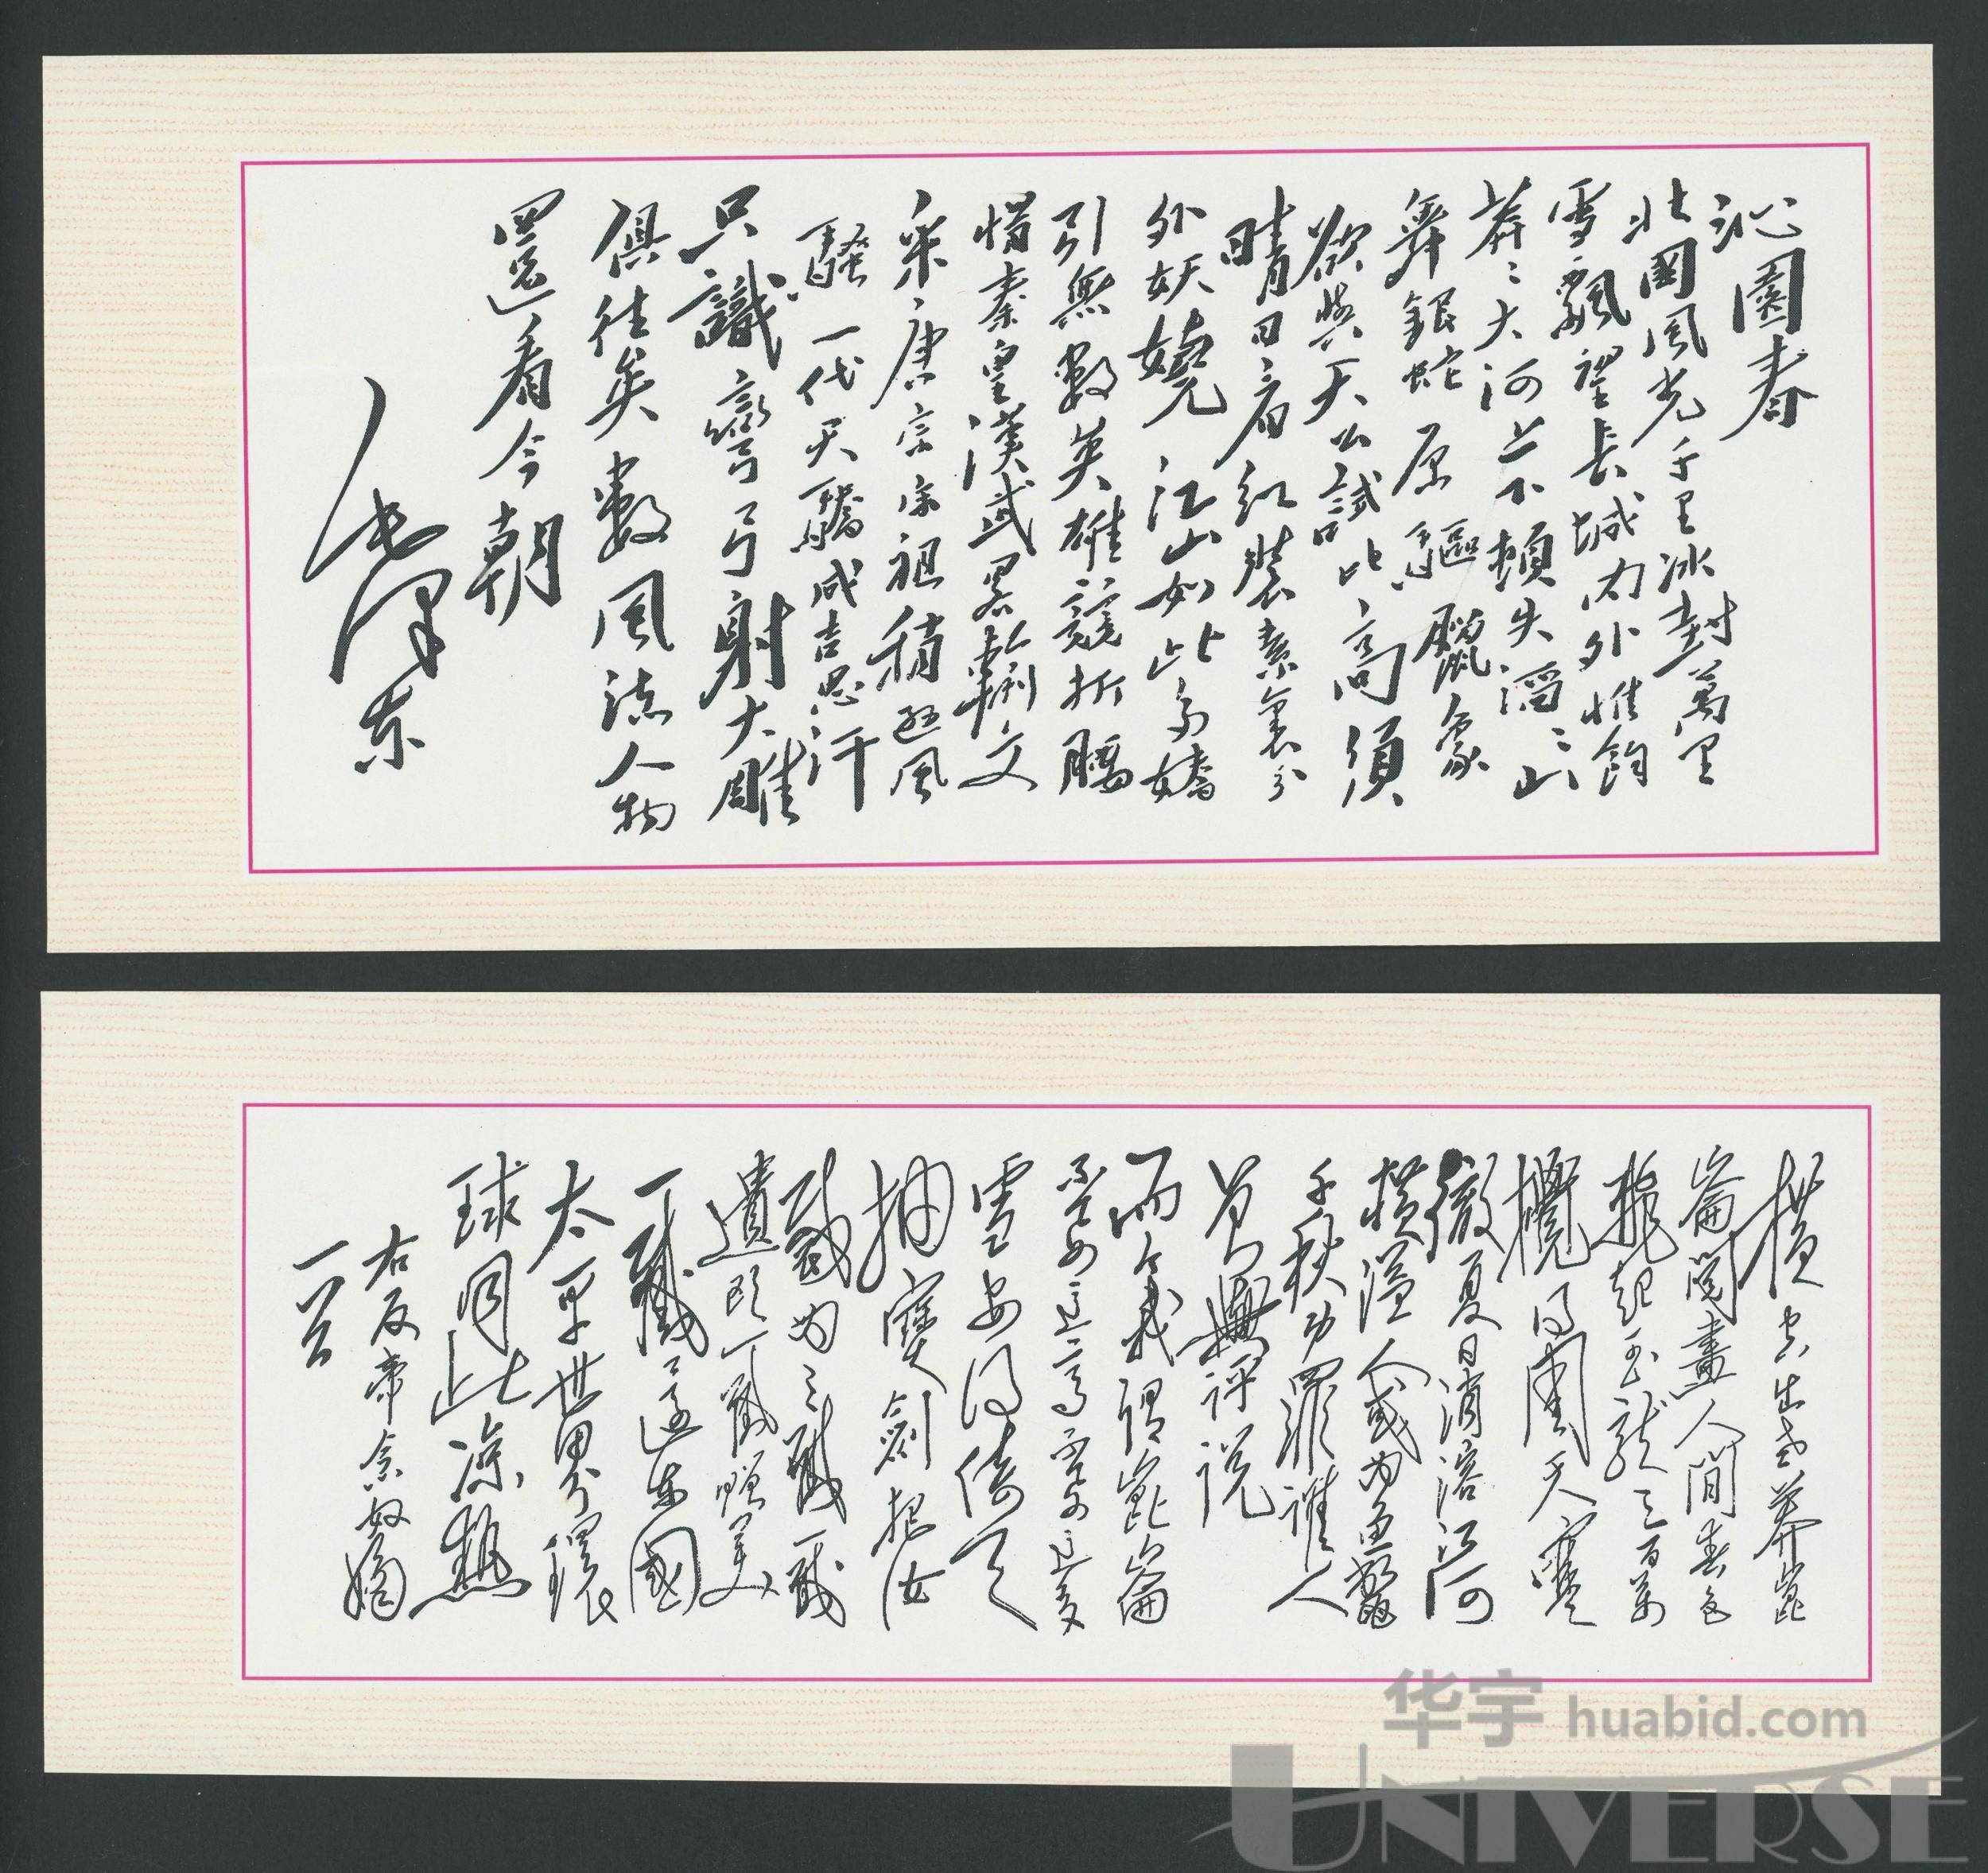 沁園春
北國風光千里冰封萬里
雪飄望長城內外惟餘
莽〻大河上下頓失滔〻山
舞銀蛇原驅臘象
欲與天公試比高須
晴日看紅裝素裹分
外妖嬈江山如此多嬌
引無數英雄競折腰
惜秦皇漢武略輸文
采唐宗宋祖稍遜風
騷一代天驕成吉思汗
只識彎弓射大雕
俱往矣數風流人物
還看今朝
毛澤東
橫空出世莽崑
崙閱盡人間春色
飛起玉龍三百萬
攪得周天寒
徹夏日消溶江河
橫溢人或為魚鱉
千秋功罪誰人
曾與評說
而今我謂崑崙
不要這高不要這多
雪安得倚天
抽寶劍把汝
裁為三截一截
遺歐一截贈美
一截還東國
太平世界環
球同此涼熱
右反帝念奴嬌
一首
华宇 huabid.com
UNIVERSE